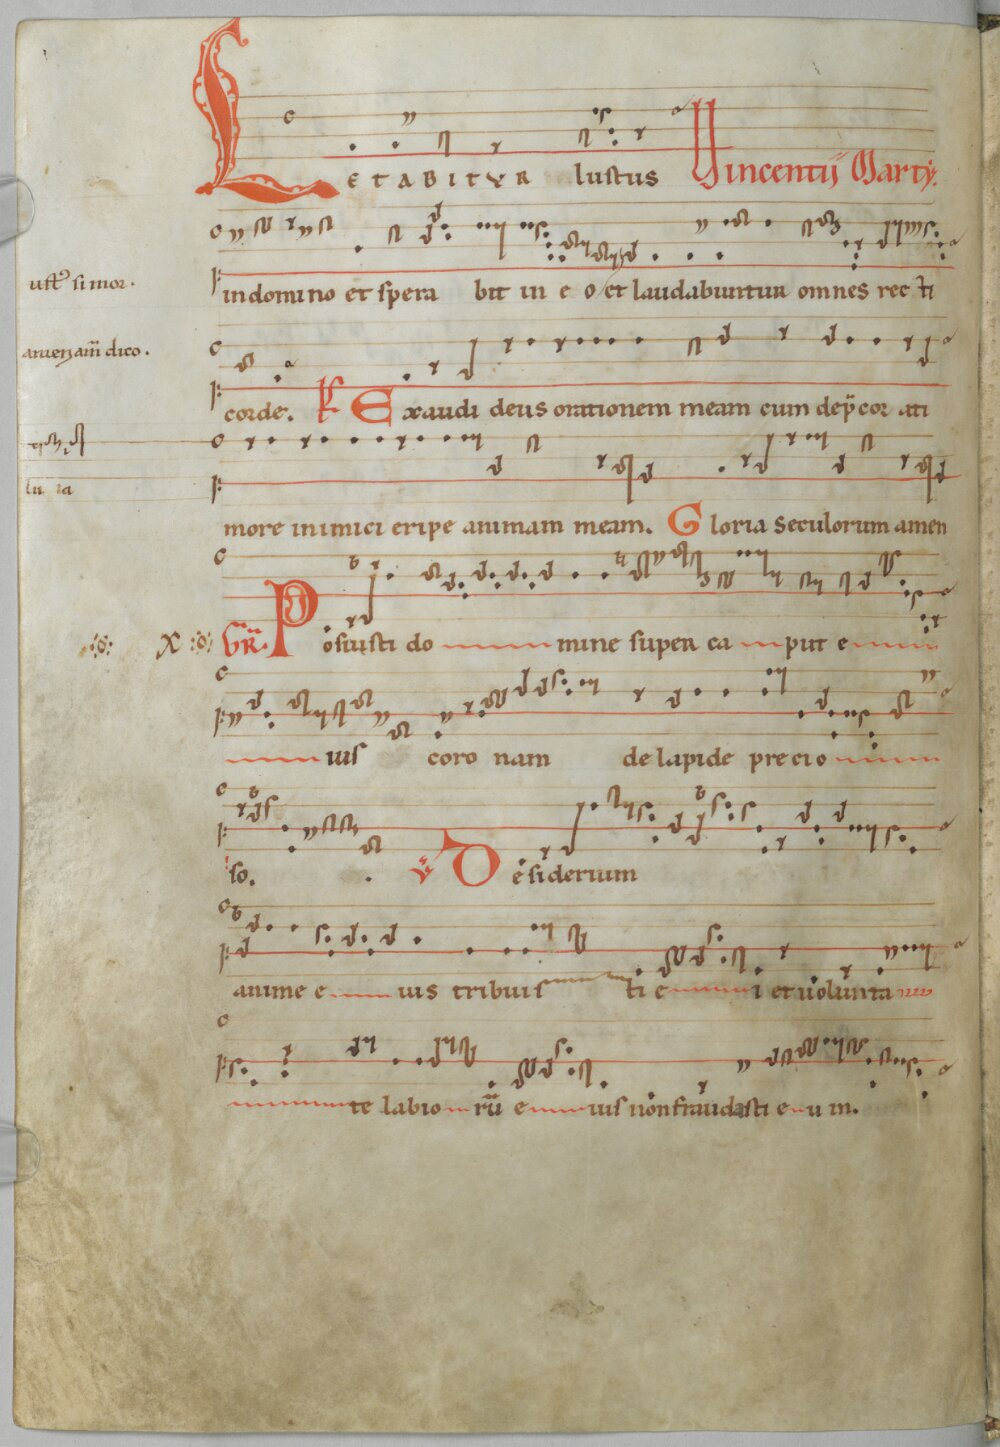 LETABITVR Iustus Vincentij Marty.
in domino et spera bit in e o et laudabuntur omnes rec ti
ust' si mor.
amen am dico.
corde. Exaudi deus orationem meam cum dep̄cor a ti
more inimici eripe animam meam. Gloria seculorum amen
lu ia
X GR. Posuisti do mine super ca put e
ius coro nam de lapide precio
so. V Desiderium
anime e ius tribuis ti e i et uolunta
te labio rū e ius non fraudasti e u m.